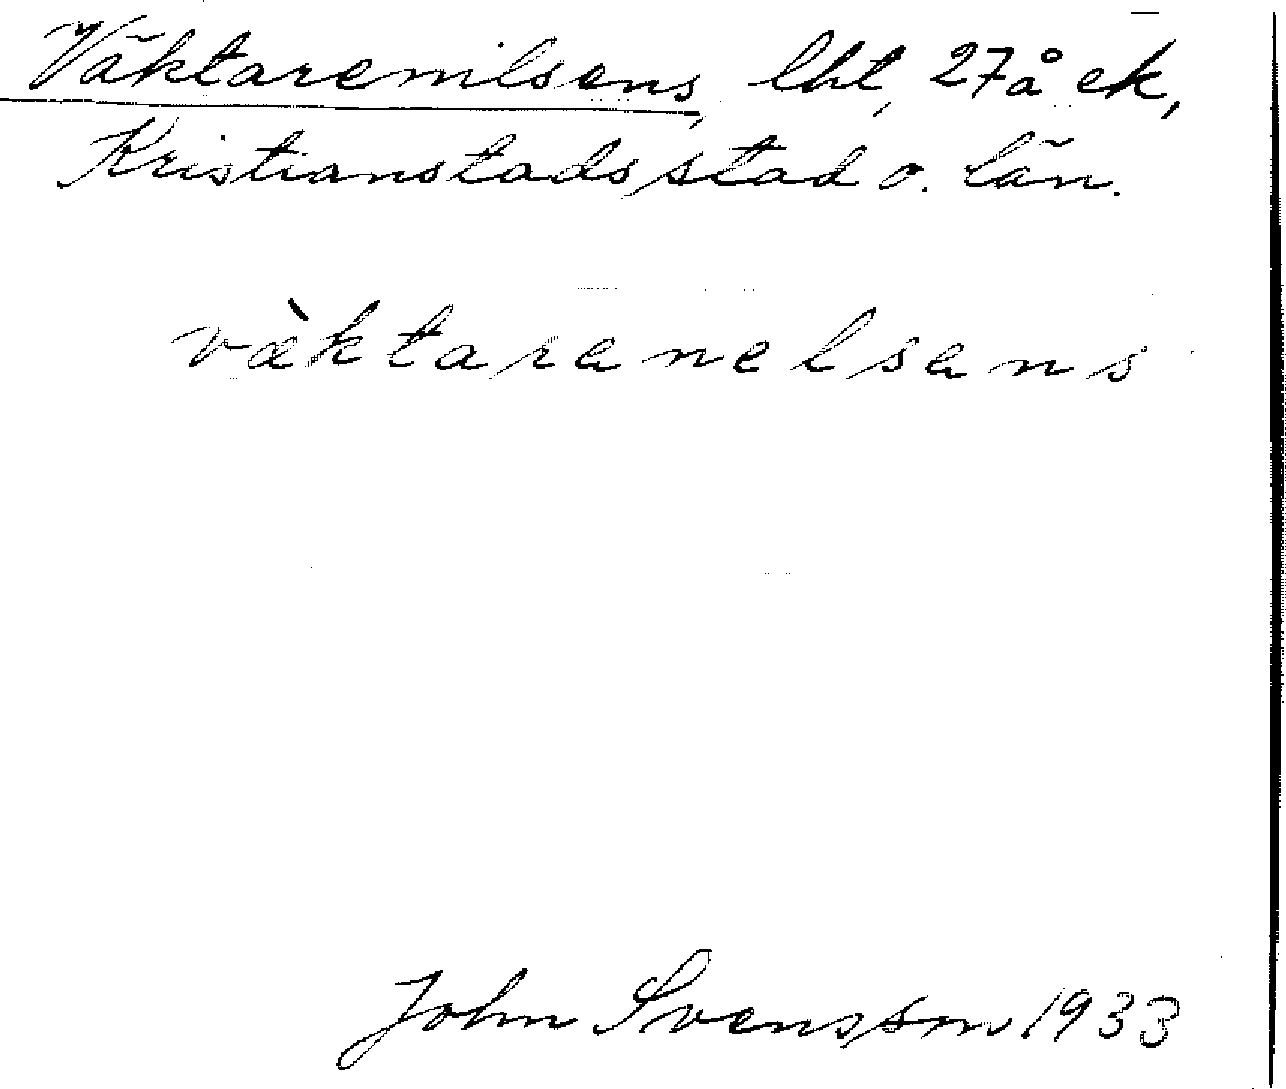 Väktarenilsens, lht, 27å ek,
Kristianstads stad o. län.
væ̀ktaranelsans
John Svensson 1933